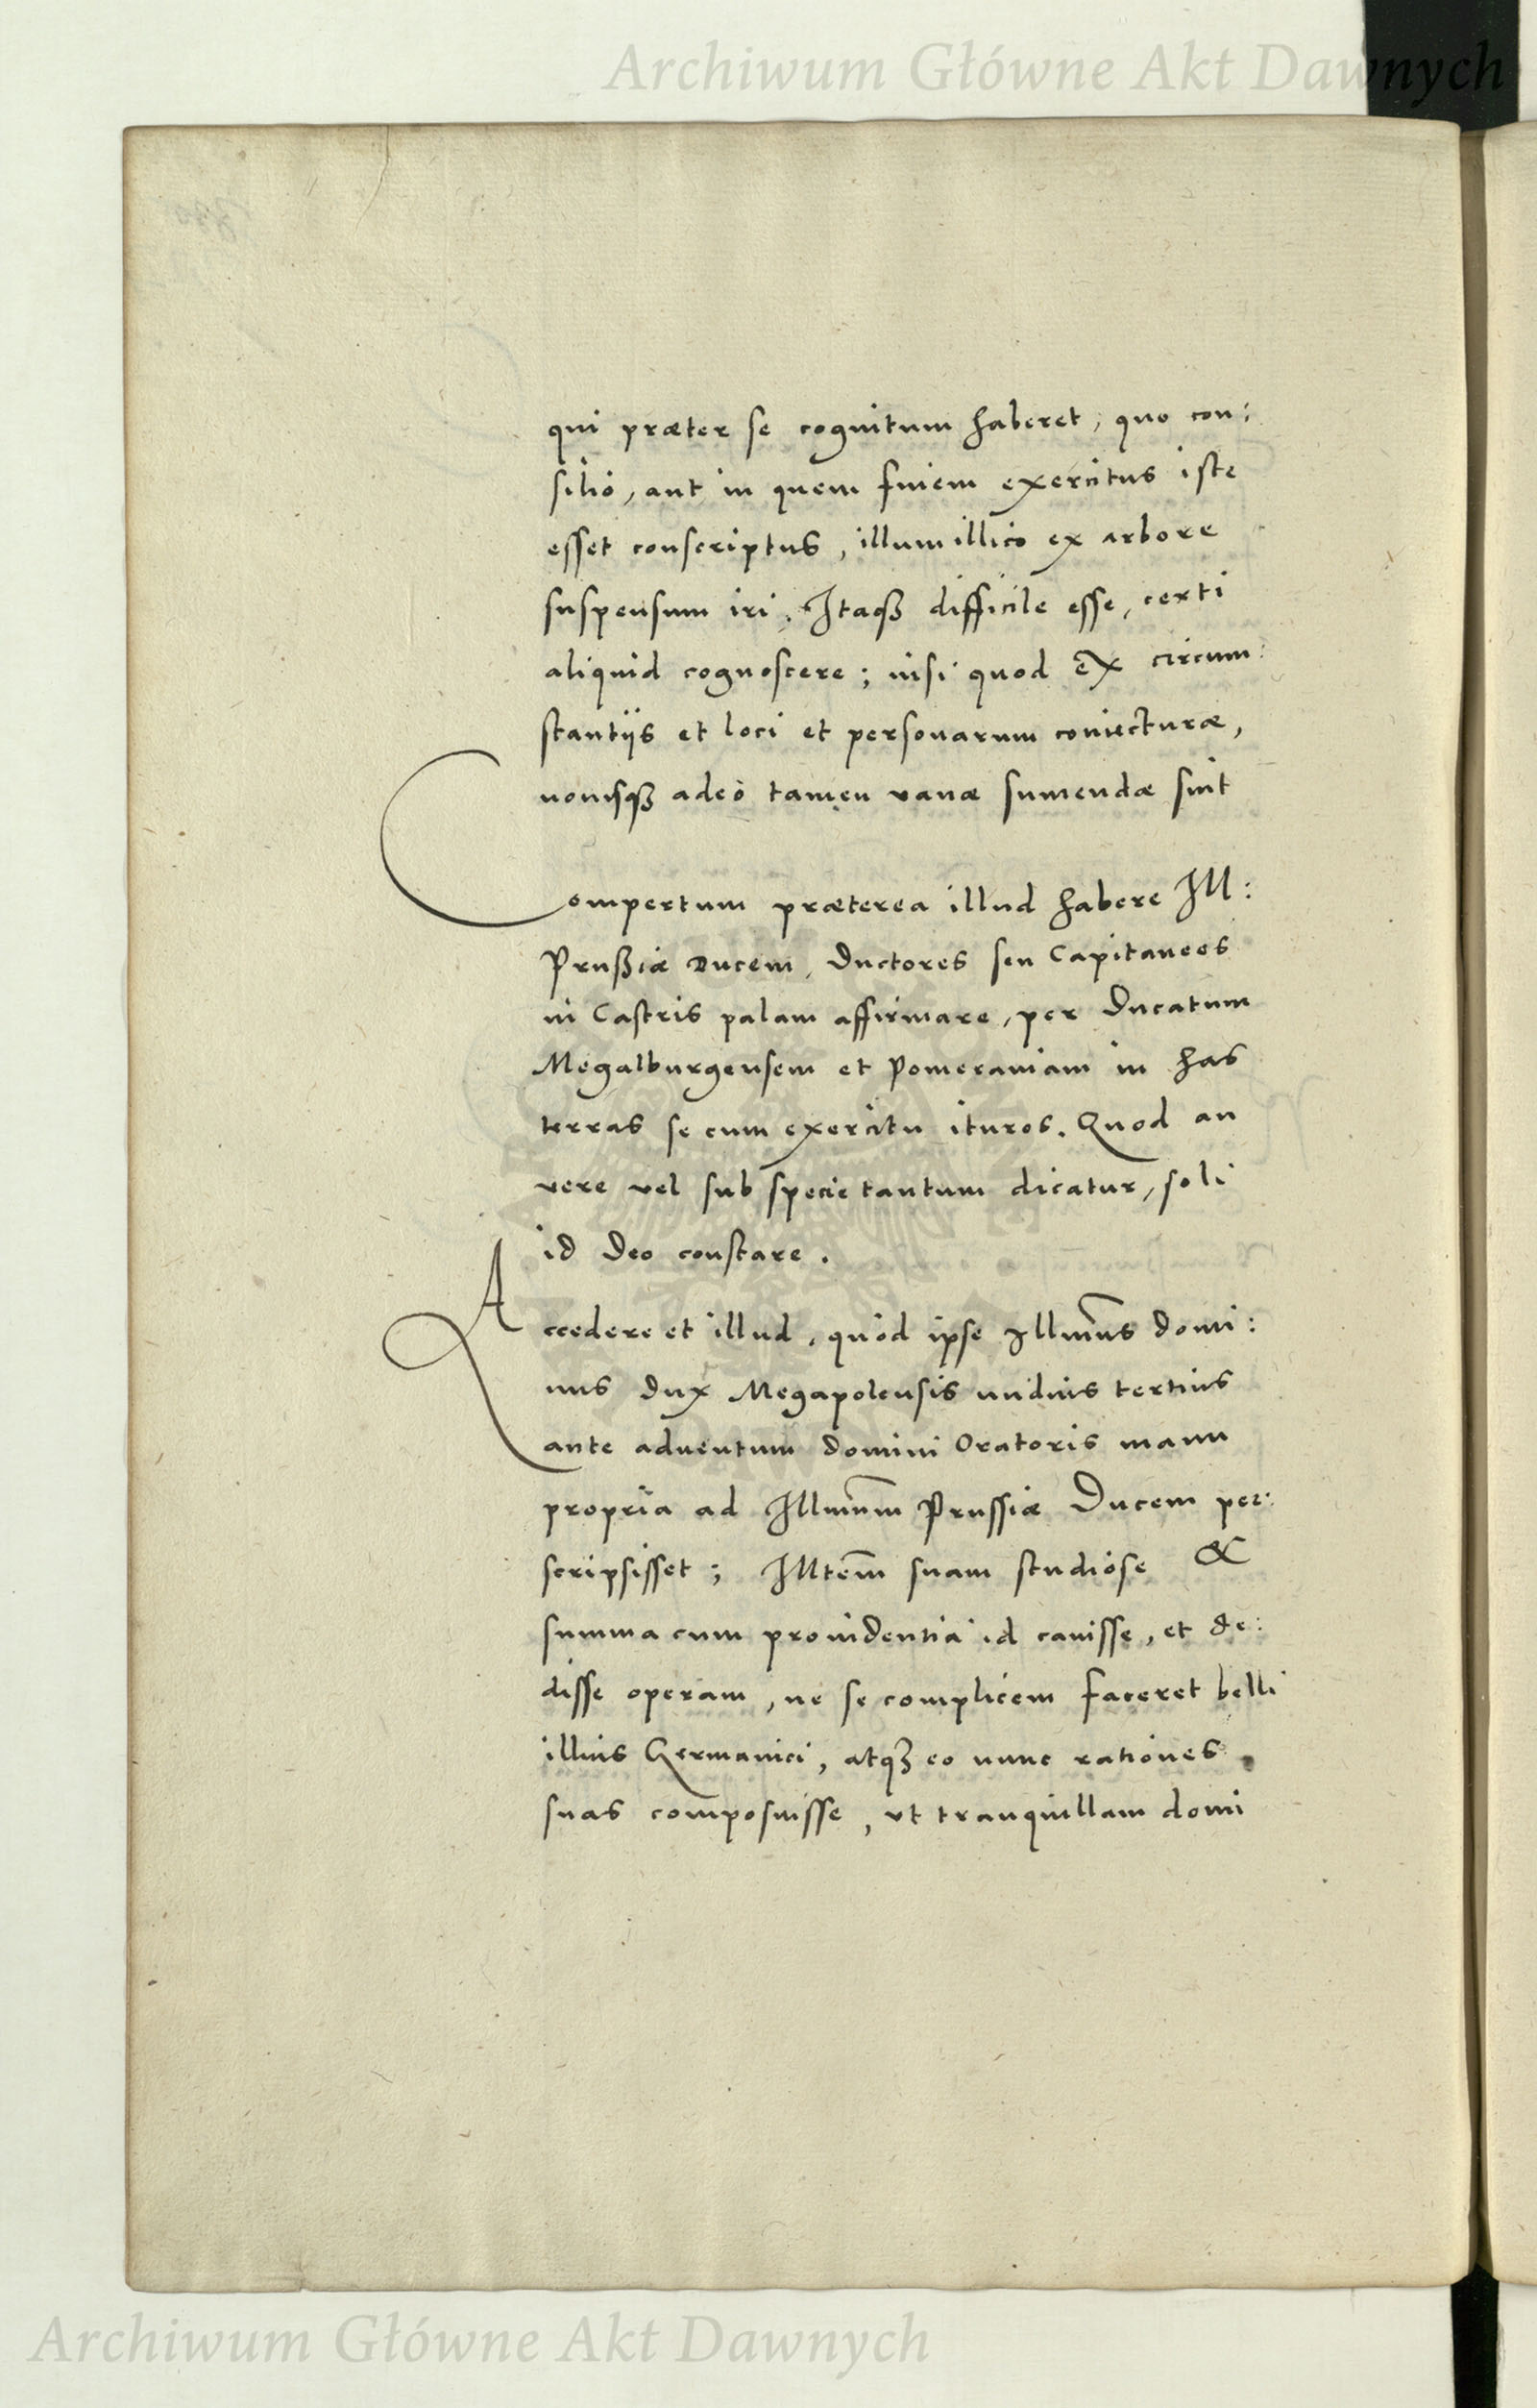 Archiwum Główne Akt Dawnych
qui præter se cognitum haberet, quo con:
silio, aut in quem finem exercitus iste
esset conscriptus, illum illico ex arbore
suspensum iri. Itaqȝ difficile esse, certi
aliquid cognoscere; nisi quod ex circum:
stantijs et loci et personarum coniecturæ,
adeò tamen vanæ sumendæ sint
Compertum præterea illud habere Ill:
Prußiæ Ducem, Ductores seu Capitaneos
in Castris palam affirmare, per Ducatum
Megalburgensem et Pomeraniam in has
terras se cum exercitu ituros. Quod an
vere vel sub specie tantum dicatur, soli
id Deo constare.
Accedere et illud, quòd ipse Illmus domi:
nus Dux Megapolensis nudius tertius
ante aduentum domini Oratoris manu
propria ad Illmum Prussiæ Ducem per:
scripsisset; Illtem suam studiose &
summa cum prouidentia id cauisse, et de:
disse operam, ne se complicem faceret belli
illius Germanici, atqȝ eo nunc rationes
suas composuisse, vt tranquillam domi
Archiwum Główne Akt Dawnych